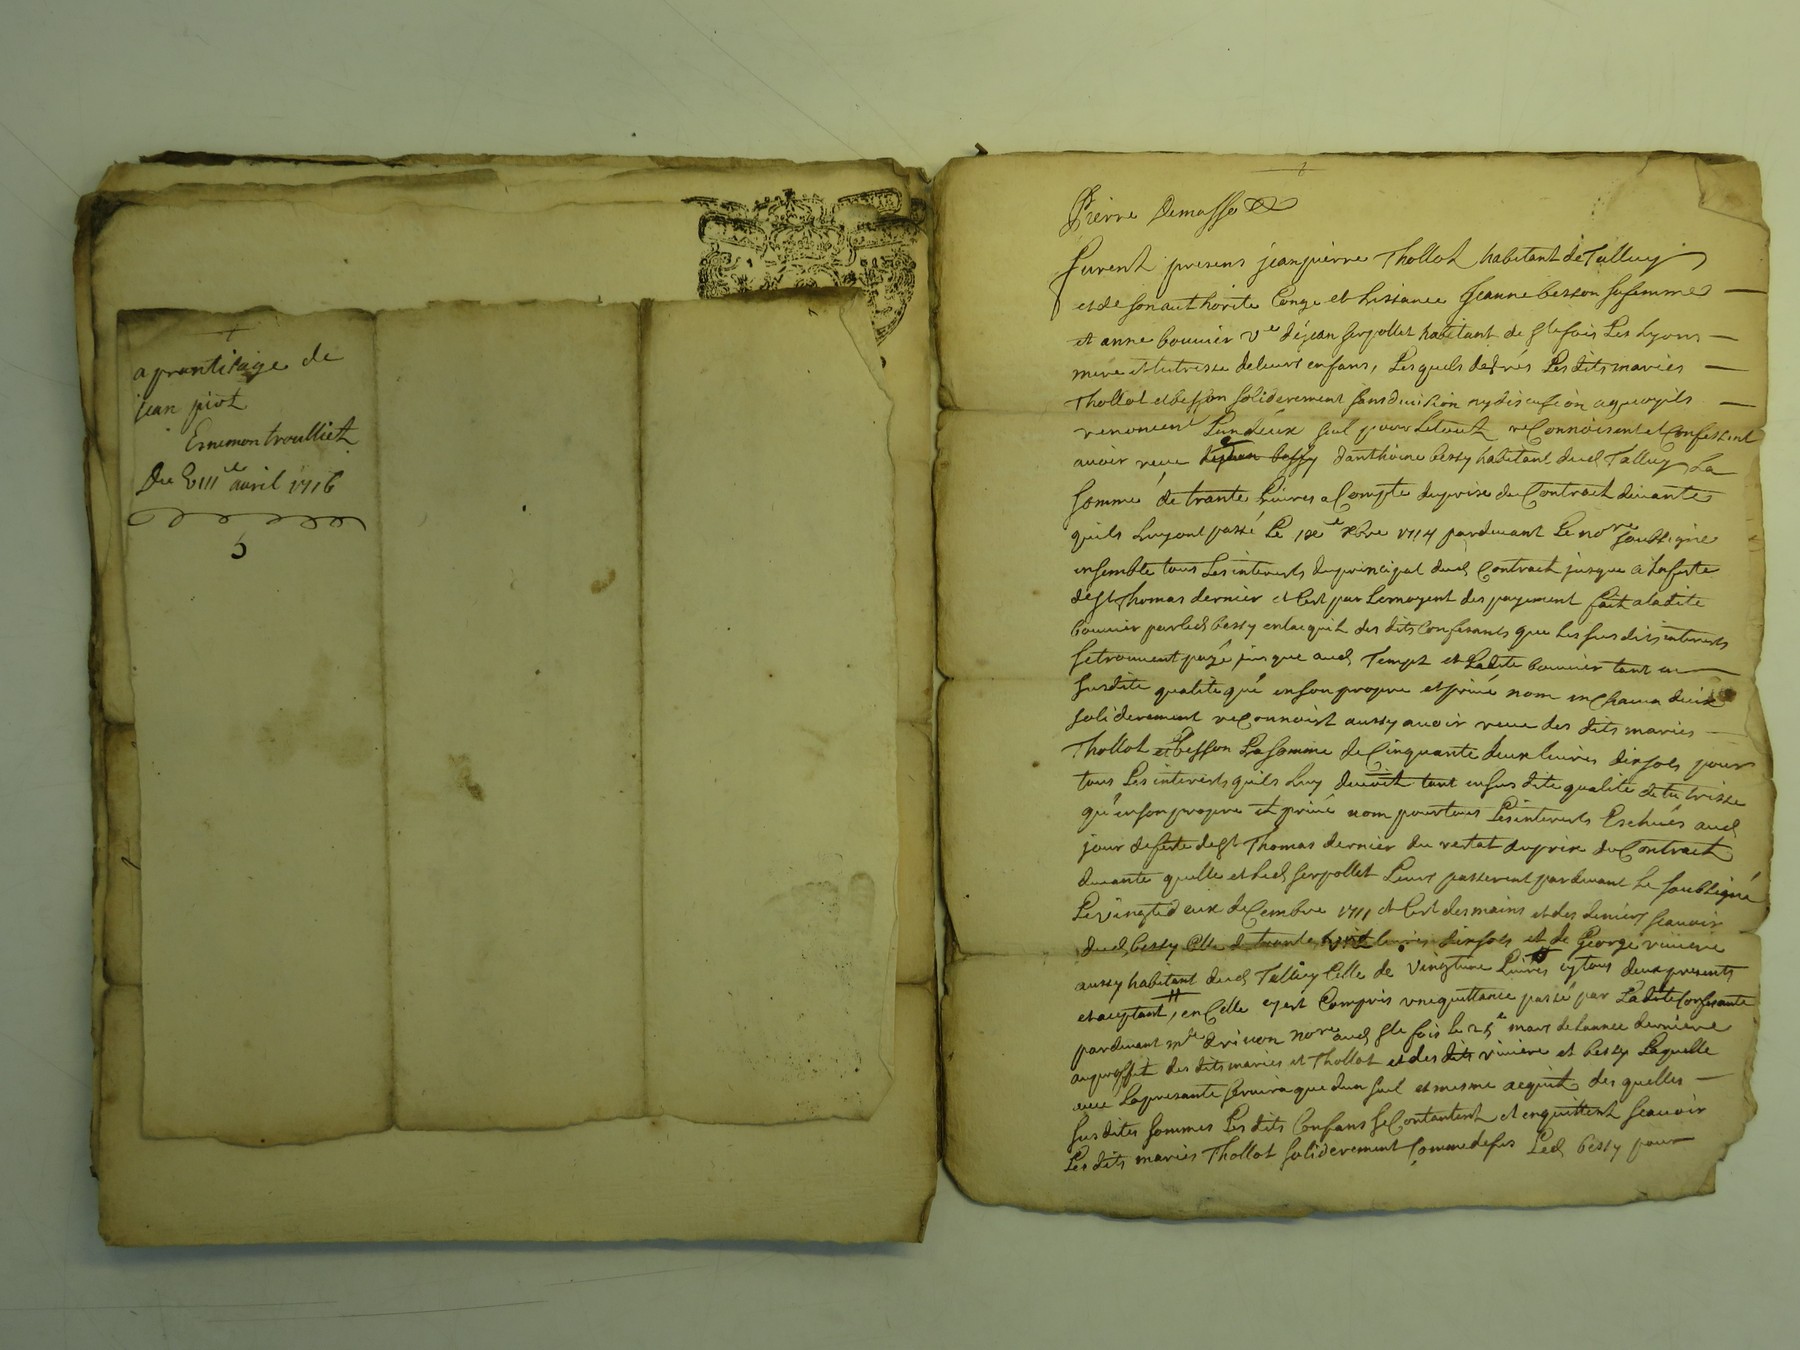 aprantisage de
jean piot
Ennemon troulliet
Du VIII avril 1716
5
Pierre Demasso
furent presens jean pierre Thollot habitant de Talluy
et de son authorite Conge et Lissance Jeanne besson sa femme
et anne bouvier ve de jean serpollet habitant de ste fois Les Lyons
mere et tutrisse de leurs enfans, Lesquels de grés Les dits mariés
Thollot et besson soliderement sans division ny discusion a quoy ils
renoncent Lun deux seul pour Le tout reConnoisent et Confessent
avoir receu danthoine bessy habitant dud Talluy La
somme de trante Livres a Compte du prix du Contract de vante
quils Luy ont passé Le xbre 1714 pardevant Le nore soubsigne
ensemble tous Les interests du principal dud Contract jusque a La feste
de st Thomas dernier et Cest par Le moyent des payement fait a ladite
bouvier par led bessy en lacquit des dits Confesants que Les susdits interests
se trouvent payé jusque aud Temps et Ladite bouvier tant en
susdite qualité qué en son propre et privé nom un Chacun deux
soliderement reConnoist aussy avoir receu des dits mariés
Thollot et besson La somme de Cinquante deux livres dix sols pour
tous Les interests quils Luy devoit tant en susdite qualité de tutrisse
qu'en son propre et privé nom pour tous Les interests Eschués aud
jour de feste de st Thomas dernier du restat du prix du Contract
de vante quelle et led serpollet Leurs passerent pardevant Le soubsigné
Le vingt deux deCembre 1711 et Cest des mains et des deniers scavoir
dud bessy Celle de trante livres dix sols et de George riviere
aussy habitant dud Talluy Celle de vingt une Livres cy tous deux presents
et aceptant, en Celle cy est Compris une quittance passé par Ladite Confesante
pardevant me drivon nore aud ste fois le 25e mars de l'annee derniere
au proffit des dits mariés et Thollot et des dits riviere et bessy Laquelle
avec La presante servira que dun seul et mesme acquit des quelles
susdites sommes Les dits Confesans se Contantent et en quittent scavoir
Les dits mariés Thollot soliderement Comme dessus Led bessy pour